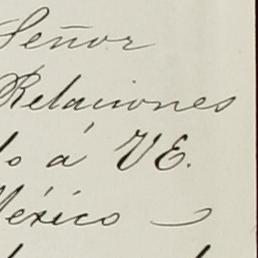 Señor
Relaciones
lo á VE.
México